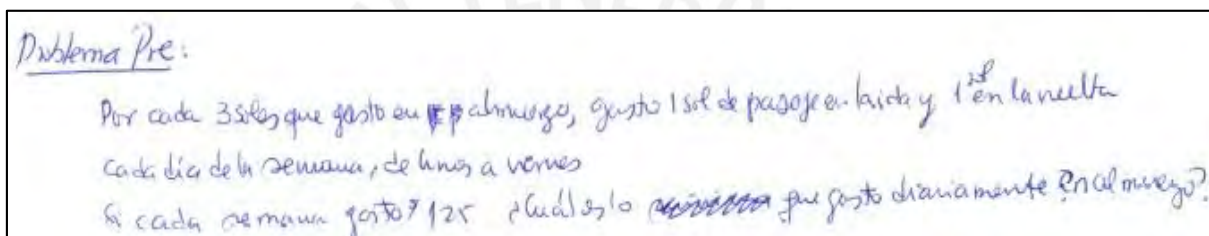 Problema Pre:
Por cada 3 soles que gasto en almuerzo, gasto 1 sol de pasaje en la ida y 1 sol en la vuelta
cada día de la semana, de lunes a viernes
Si cada semana gasto 125 ¿Cuál es lo que gasto diariamente en almuerzo?